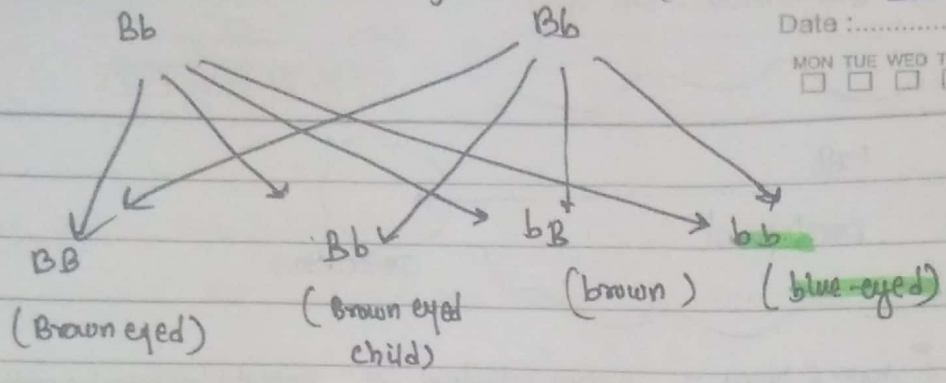 Bb Bb
Date :............
MON TUE WED T
BB Bb bB bb
(Brown eyed) (Brown eyed child) (brown) (blue-eyed)